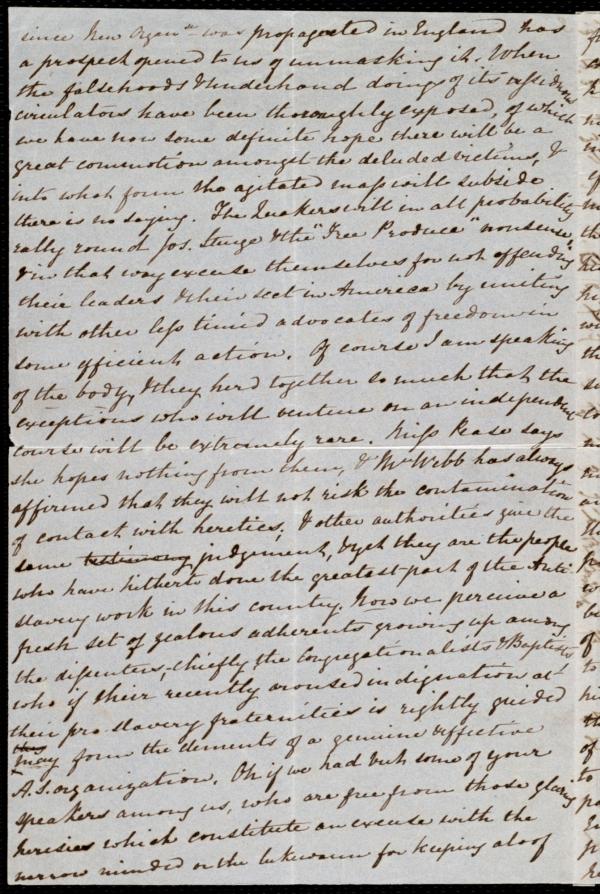 since New Organ.n was propagated in England has
a prospect opened to us of unmasking it. When
the falsehoods & underhand doings of its insidious
circulators have been thoroughly exposed, of which
we have now some definite hope there will be a
great commotion amongst the deluded victims, &
into what form the agitated mass will subside
there is no saying. The Quakers will in all probability
rally round Jos. Sturge & the "Free Produce" nonsense,
& in that way excuse themselves for not offending
their leaders & their sect in America by uniting
with other less timid advocates of freedom in
some efficient action. Of course I am speaking
of the body, & they herd together so much that the
exceptions who will venture on an independent
course will be extremely rare. Miss Pease says
she hopes nothing from them, & Mr Webb has always
affirmed that they will not risk the contamination
of contact with heretics, & other authorities give the
same testimony judgement, & yet they are the people
who have hitherto done the greatest part of the Anti
slavery work in this country. Now we perceive a
fresh set of zealous adherents growing up among
the dissenters, chiefly the Congregationalists & Baptists,
who if their recently aroused indignation at
their pro slavery fraternities is rightly guided
may form the elements of a genuine & effective
A.S. organization. Oh if we had but some of your
speakers among us, who are free from those glaring
heresies which constitute an excuse with the
narrow minded or the lukewarm for keeping aloof